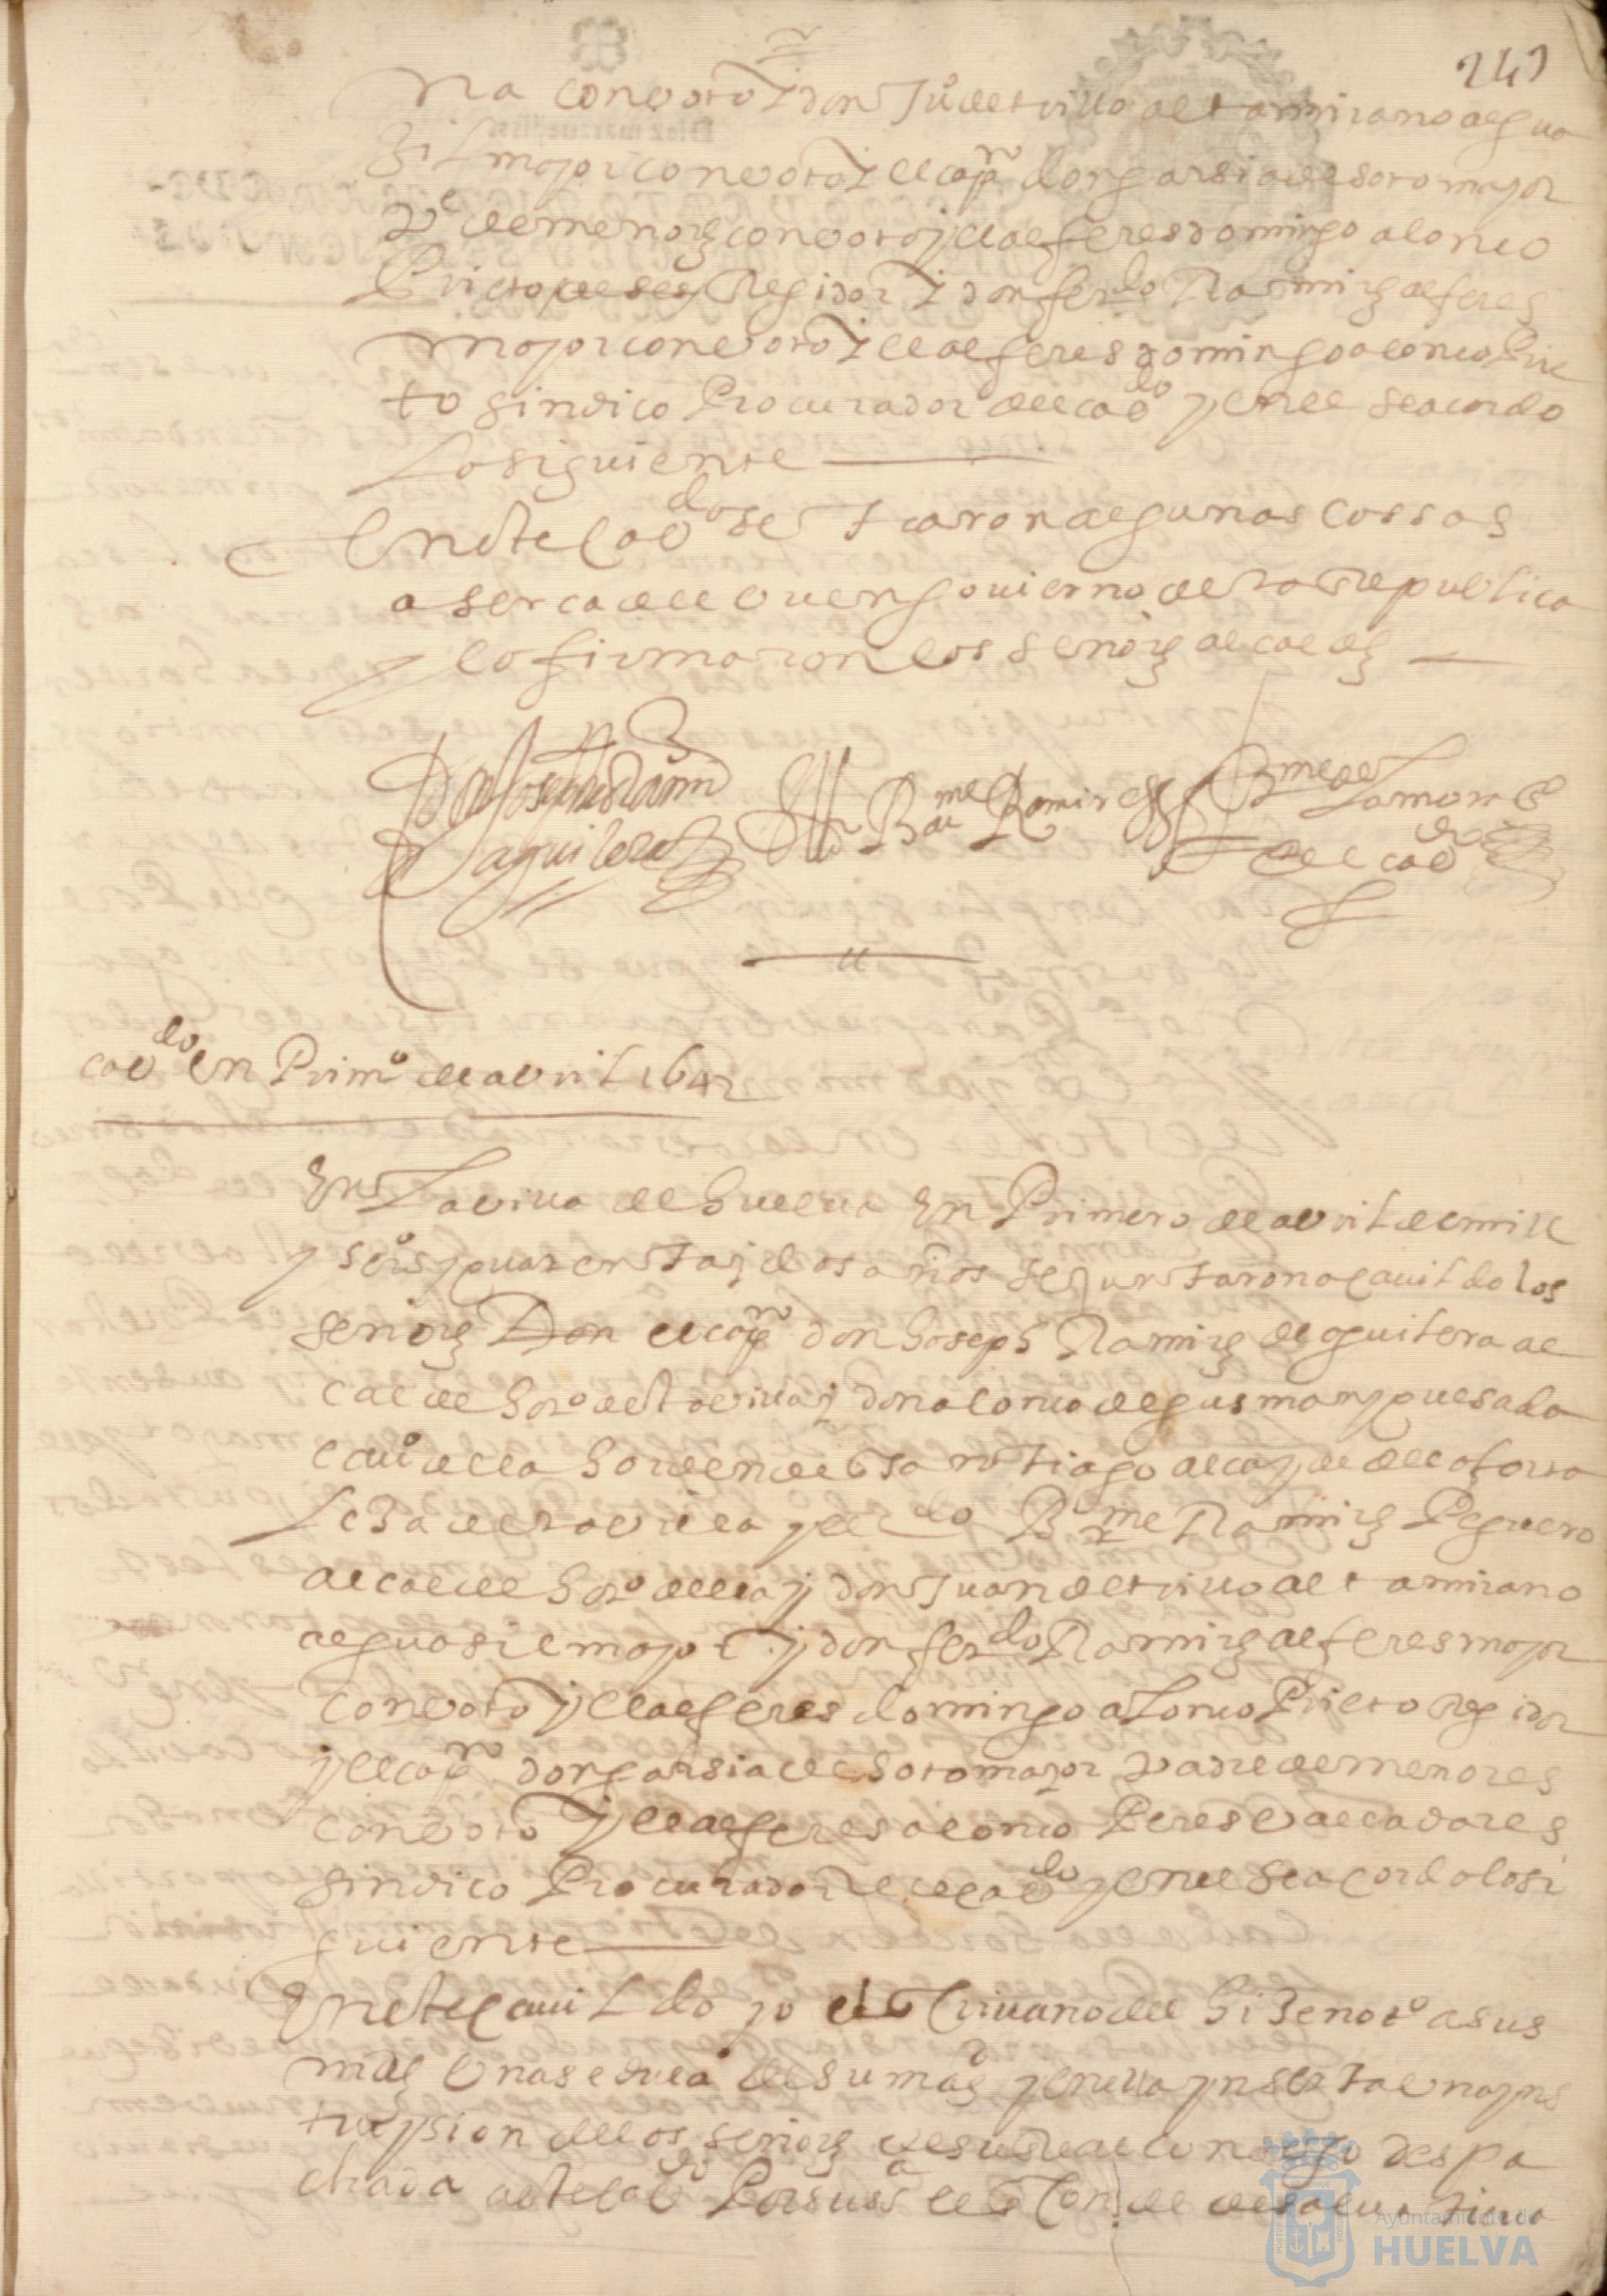 241
na con voto y don Juº de trillo altamirano algua
zil mayor con voto y el capan don garsia de sotomayor
Pe de menores con voto y el alferes domingo alonso
Prieto de ses Regidor y don ferdo Ramires alferes
mayor con voto y el alferes domingo alonso Prie
to sindico Procurador del cabdo y en el se acordo
lo siguiente
En este cabdo se trataron algunas cossas
aserca del buen govierno de esta Republica
y lo firmaron los señores alcaldes
Don Joseph Ramirez
de aguilera
Bme Ramires
Bme de
Zamora
del cabdo
cabdo en Primº de abril 1642
En la villa de huelva En Primero de abril de mill
y seisº y quarenta y dos años se juntaron a cavildo los
señores Don el capan don Joseph Ramires de aguilera al
calde horº desta villa y don alonso de gusman y quesada
cavº de la horden de santiago alcayde de la forta
leza desta villa y el ldo Bme Ramires Peguero
alcalde horº della y don Juan de trillo altamirano
alguasil mayor y don ferdo Ramires alferes mayor
con voto y el alferes domingo alonso Prieto regidor
y el capan don garsia de sotomayor Padre de menores
con voto y el alferes alonso Peres valladares
sindico Procurador del cabdo y en el se acordo lo si
guiente
En este cavildo yo el escrivano del hize notº a sus
mdes una sedula de su magd y en ella ynserta una yns
truysion de los señores de su Real consejo despa
chada a este cabdo Por su sª el Conde de salvatierra
Ayuntamiento de
HUELVA